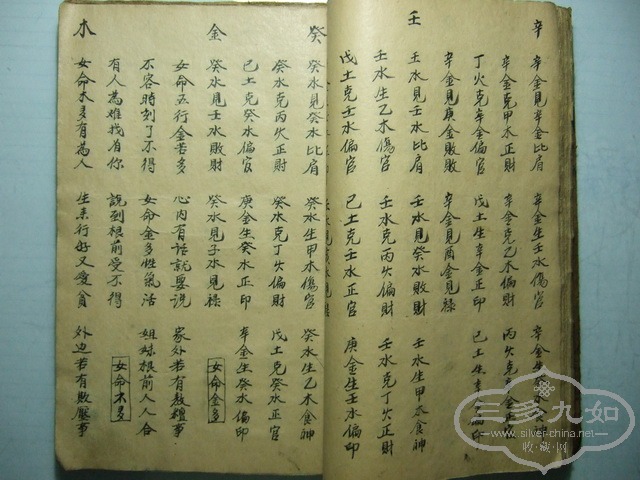 辛
辛金見辛金比肩 辛金生壬水傷官 辛金生
辛金克甲木正財 辛金克乙木偏財 丙火克辛金正
丁火克辛金偏官 戊土生辛金正印 己土生辛偏印
辛金見庚金敗敗 辛金見酉金見禄
壬
壬水見壬水比肩 壬水見癸水敗財 壬水生甲木食神
壬水生乙木傷官 壬水克丙火偏財 壬水克丁火正財
戊土克壬水偏官 己土克壬水正官 庚金生壬水偏印
癸
癸水見癸水比肩 癸水生甲木傷官 癸水生乙木食神
癸水克丙火正財 癸水克丁火偏財 戊土克癸水正官
己土克癸水偏官 庚金生癸水正印 辛金生癸水偏印
癸水見壬水敗財 癸水見子水見禄 女命金多
金
女命五行金苦多 心內有話就要說 家外若有糧事
不容時刻了不得 女命金多性氣活 姐妹根前人人合
有人為难找有你 說到根前受不得 女命木多
木
女命木多有為人 生来行好又愛貪 外边若有敗壓事
三多九如
www.silver-china.net
收·藏·网